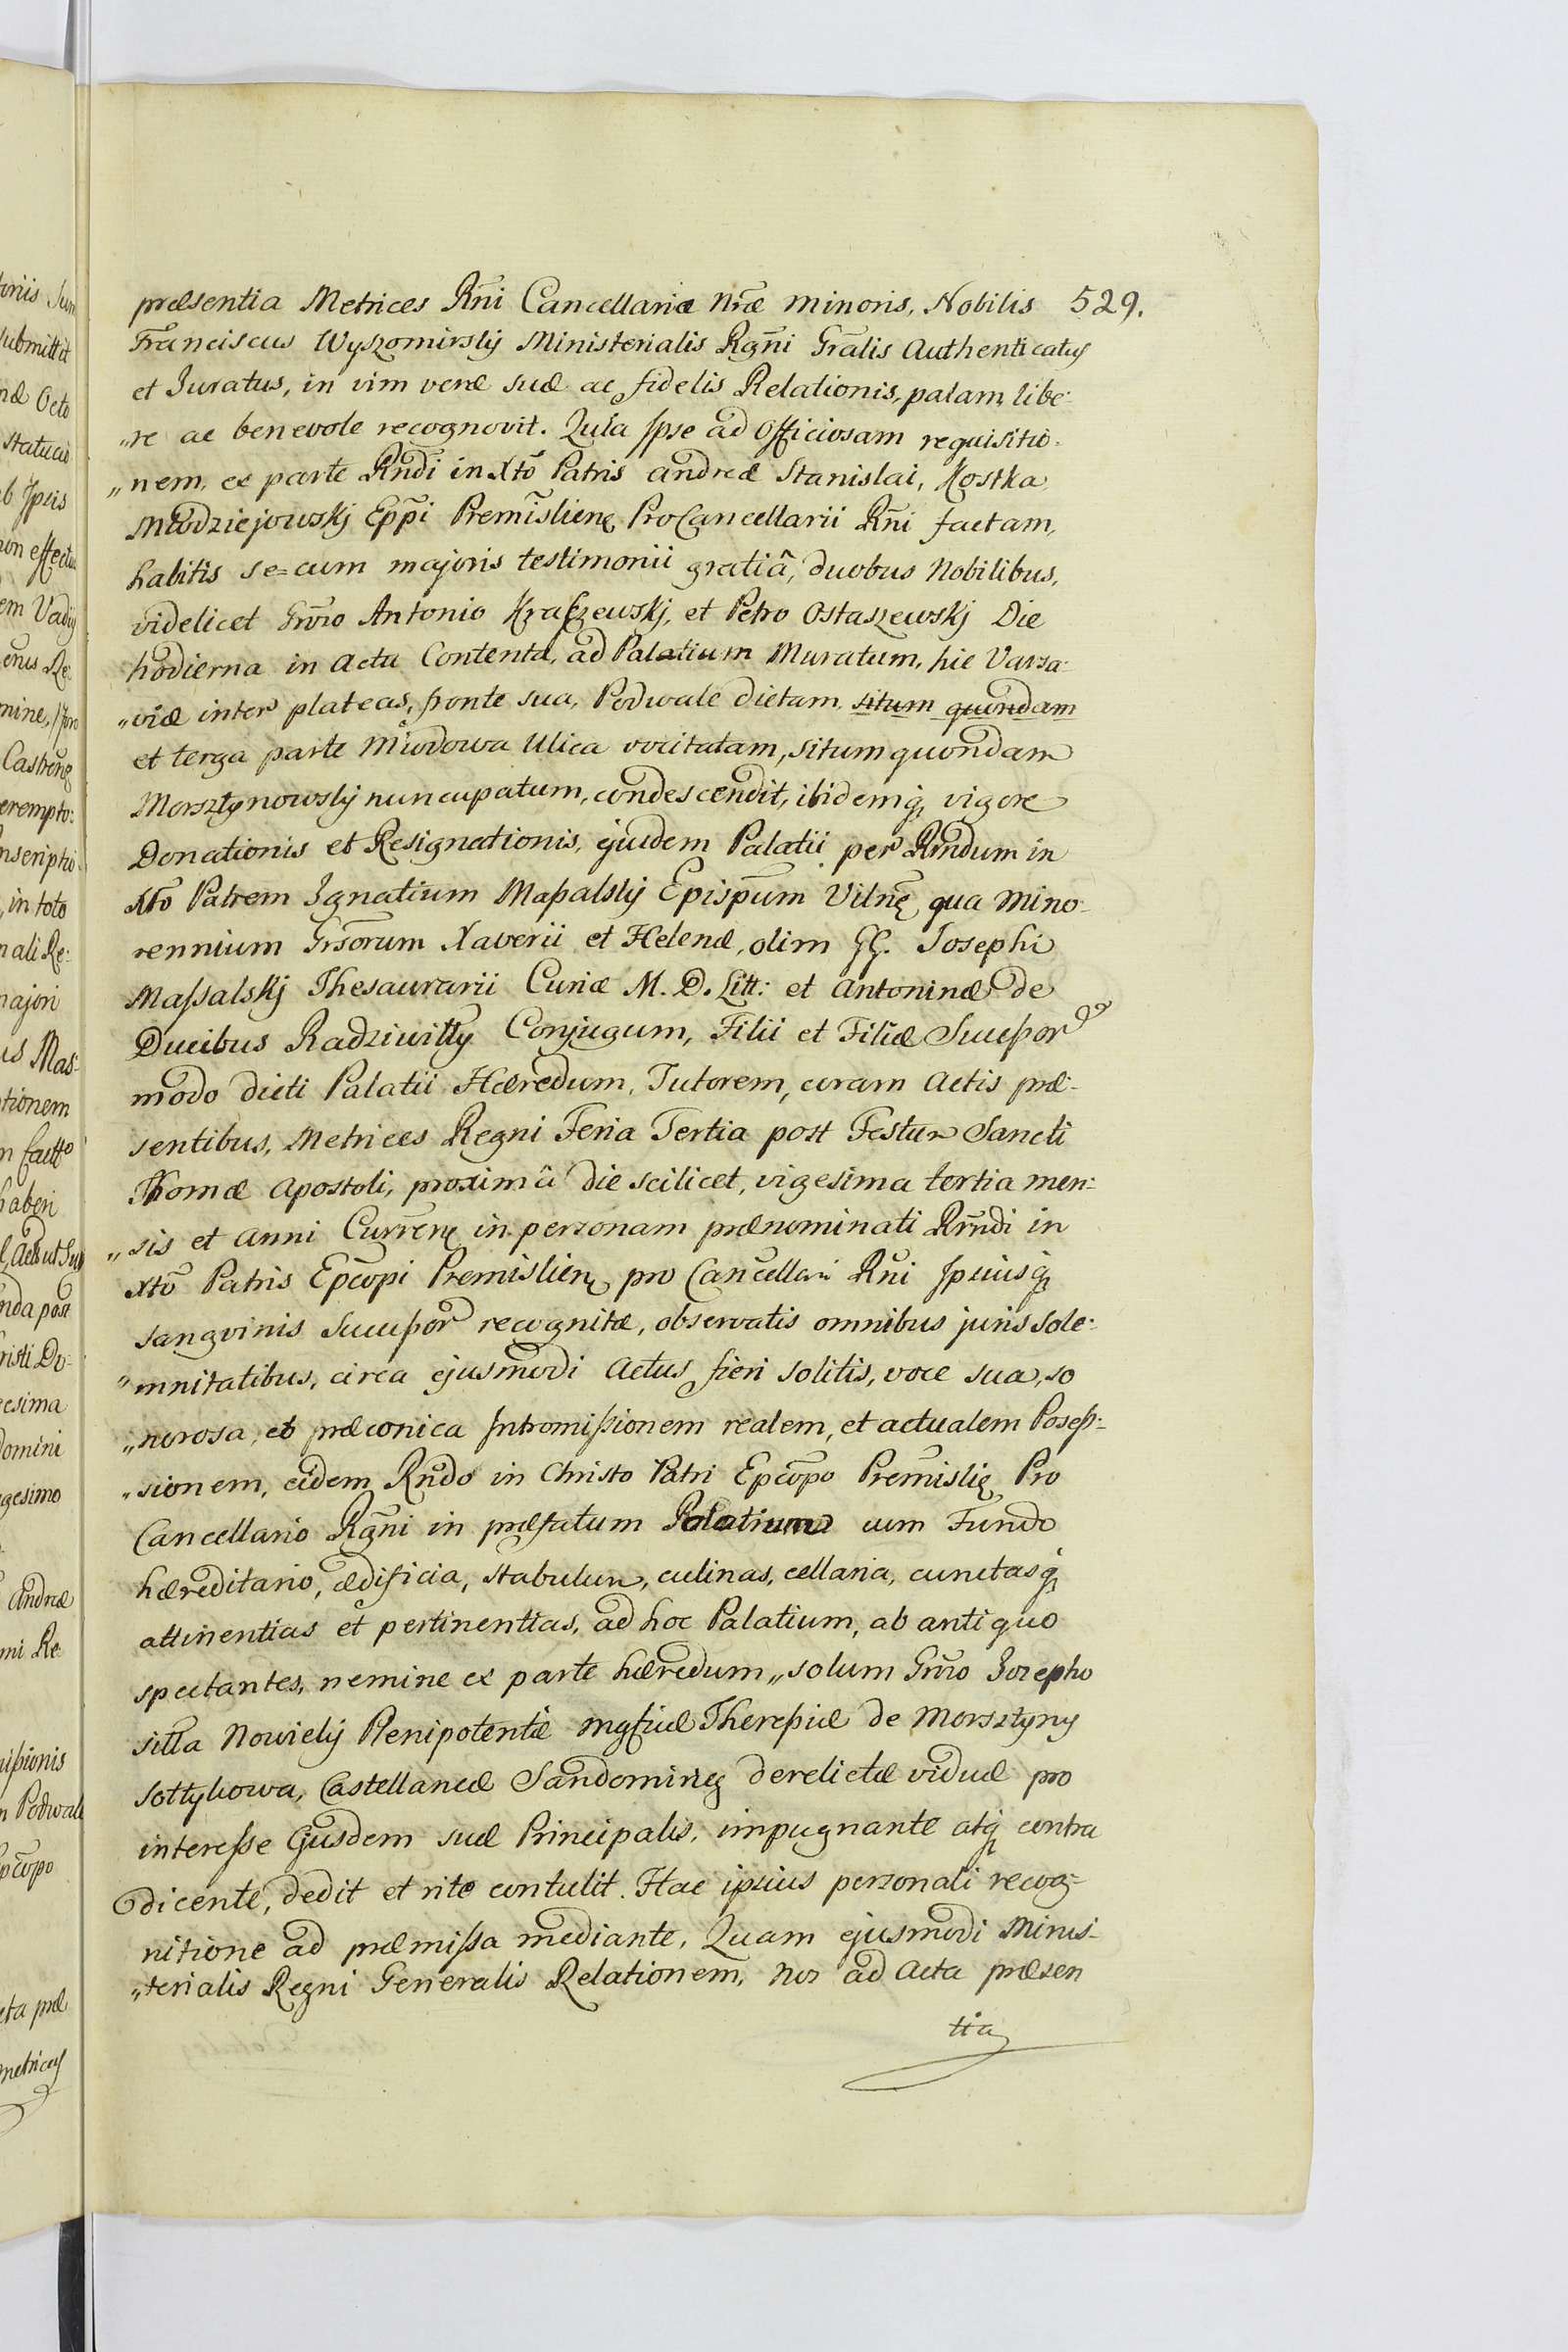 præsentia Metrices Rñi Cancellariæ Nrãe minoris, Nobilis 529.
Franciscus Wyszomirskj Ministerialis Rgñi Grãlis Authenticatus
et Juratus, in vim veræ suæ ac fidelis Relationis, palam libe-
„re ac benevole recognovit. Quia Ipse ad Officiosam requisitio-
„nem, ex parte Rndi in Xtõ Patris Andreæ Stanislai, Kostka
Młodziejowskj Eppĩ Premisliens ProCancellarii Rñi factam,
habitis se=cum majoris testimonii gratiâ, duobus Nobilibus,
videlicet Grso Antonio Kraszewskj, et Petro Ostaszewskj Die
hodierna in Actu Contenta, ad Palatium Muratum, hic Varsa-
„viæ inter plateas, fronte sua, Podwale dictam, situm quondam
et terga parte Miodowa Ulica vocitatam, situm quondam
Morsztynowskj nuncupatum, condescendit, ibidemq vigore
Donationis et Resignationis, ejusdem Palatii per Rndum in
Xto Patrem Ignatium Massalskj Epispum Vilne qua mino-
rennium Grsorum Xaverii et Helenæ, olim GG. Josephi
Massalskj Thesaurarii Curiæ M. D. Litt: et Antoninæ de
Ducibus Radziwiłły Conjugum, Filii et Filiæ Successor
modo dicti Palatii Hæredum, Tutorem, coram Actis præ-
sentibus, Metrices Regni Feria Tertia post Festum Sancti
Thomæ Apostoli, proximâ die scilicet, vigesima tertia men-
„sis et Anni Curren in personam prænominati Rndi in
Xtõ Patris Epcopi Premislien pro Cancellari Rñi Ipsiusq
sangvinis Successor recognitæ, observatis omnibus juris sole-
„mnitatibus, circa ejusmodi Actus fieri solitis, voce sua, so
„norosa, et præconica Intromissionem realem, et actualem Posess-
„sionem, eidem Rndo in Christo Patri Epcopo Premislie Pro
Cancellario Rgñi in præfatum Palatium cum Fundo
hæreditario, ædificia, stabulum, culinas, cellaria, cunctasq
attinentias et pertinentias, ad hoc Palatium, ab antiquo
spectantes, nemine ex parte hæredum „ solum Grso Josepho
silla Nowiely Plenipotentæ Mgficæ Theressiæ de Morsztyny
Sołtykowa, Castellaneæ Sandomireg derelictæ viduæ pro
interesse Ejusdem suæ Principalis, impugnante atq contra
dicente, dedit et rite contulit. Hac ipsius personali recog-
nitione ad præmissa mediante, Quam ejusmodi Minis-
„terialis Regni Generalis Relationem, Nos ad Acta præsen
tia